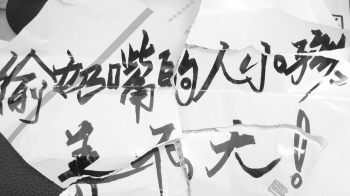 偷奶嘴的人小孩
养不大！